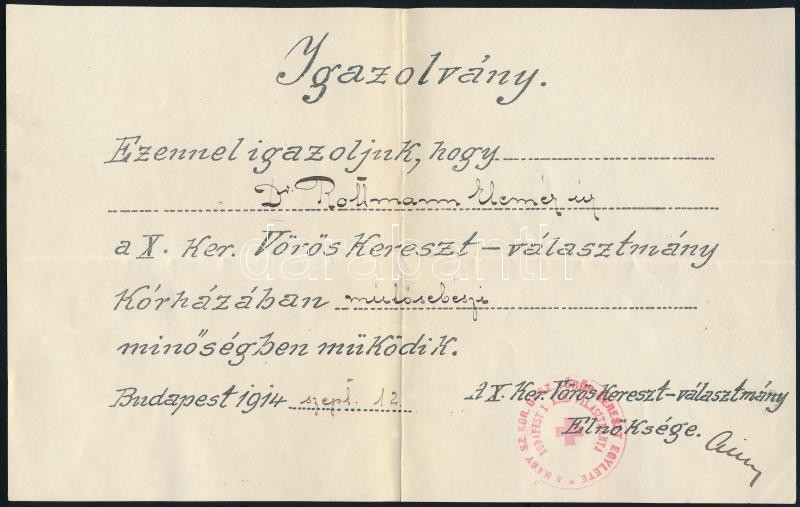 Igazolvány.
Ezennel igazoljuk, hogy
Dr. Rottmann Elemér úr
a X. Ker. Vörös Kereszt-választmány
Kórházában műtősebészi
minőségben működik.
Budapest 1914 szept. 12.
A X. Ker. Vörös Kereszt-választmány
Elnöksége.
A MAGY. SZ. KOR. ORSZ. VÖRÖS KERESZT EGYLETE
BUDAPEST X. KER. VÁLASZTMÁNYA
darabanth